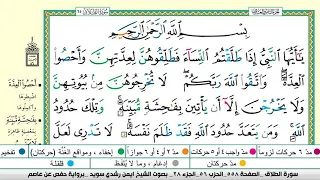 بِسْمِ ٱللَّهِ ٱلرَّحْمَٰنِ ٱلرَّحِيمِ
يَٰٓأَيُّهَا ٱلنَّبِيُّ إِذَا طَلَّقْتُمُ ٱلنِّسَآءَ فَطَلِّقُوهُنَّ لِعِدَّتِهِنَّ وَأَحْصُوا۟
ٱلْعِدَّةَ وَٱتَّقُوا۟ ٱللَّهَ رَبَّكُمْ لَا تُخْرِجُوهُنَّ مِنۢ بُيُوتِهِنَّ
وَلَا يَخْرُجْنَ إِلَّآ أَن يَأْتِينَ بِفَٰحِشَةٍ مُّبَيِّنَةٍ وَتِلْكَ حُدُودُ
ٱللَّهِ وَمَن يَتَعَدَّ حُدُودَ ٱللَّهِ فَقَدْ ظَلَمَ نَفْسَهُۥ لَا تَدْرِى لَعَلَّ
أَحْصُوا الْعِدَّةَ
مدّ ٦ حركات لزوماً
مدّ ٢ أو ٤ أو ٦ جوازاً
إخفاء، ومواقع الغُنَّة (حركتان)
تفخيم
مدّ حركتان
إدغام، وما لا يُلفَظ
قلقلة
سورة الطلاق . الصفحة ٥٥٨. الجزء ٢٨ . بصوت الشيخ أيمن رشدي سويد .برواية حفص عن عاصم